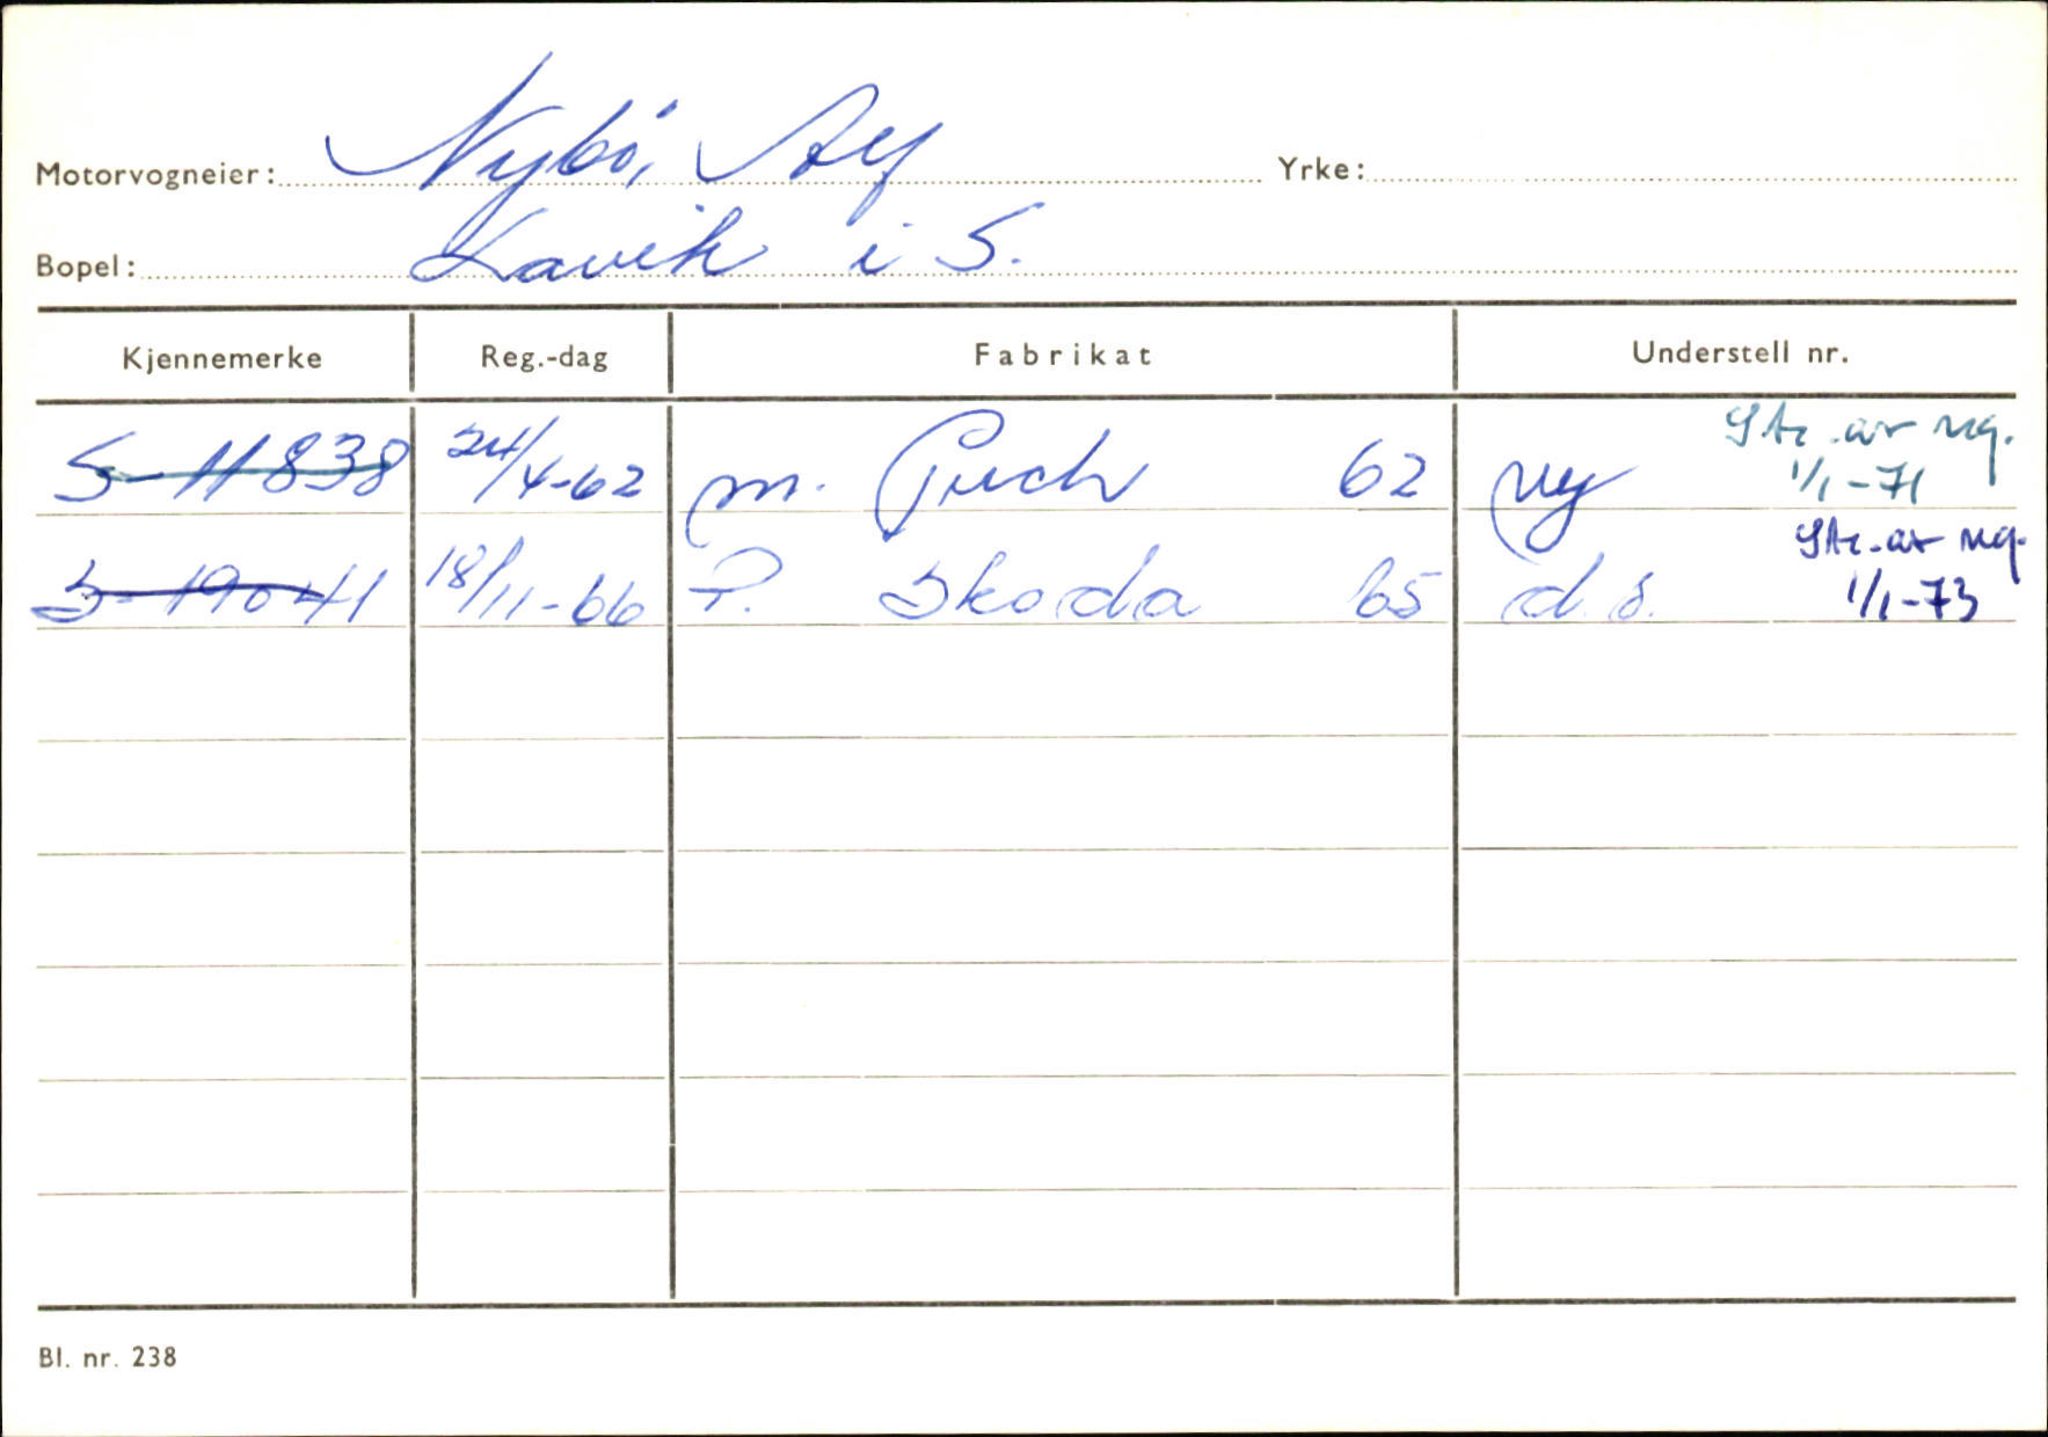 Motorvogneier: Nybö, Alf Yrke:
Bopel: Lavik i S.
Kjennemerke Reg.-dag Fabrikat Understell nr.
S-11838 24/4-62 m. Puch 62 ny Str. av reg. 1/1-71
S-19041 18/11-66 P. Skoda 65 d.s. Str. av reg. 1/1-73
Bl. nr. 238